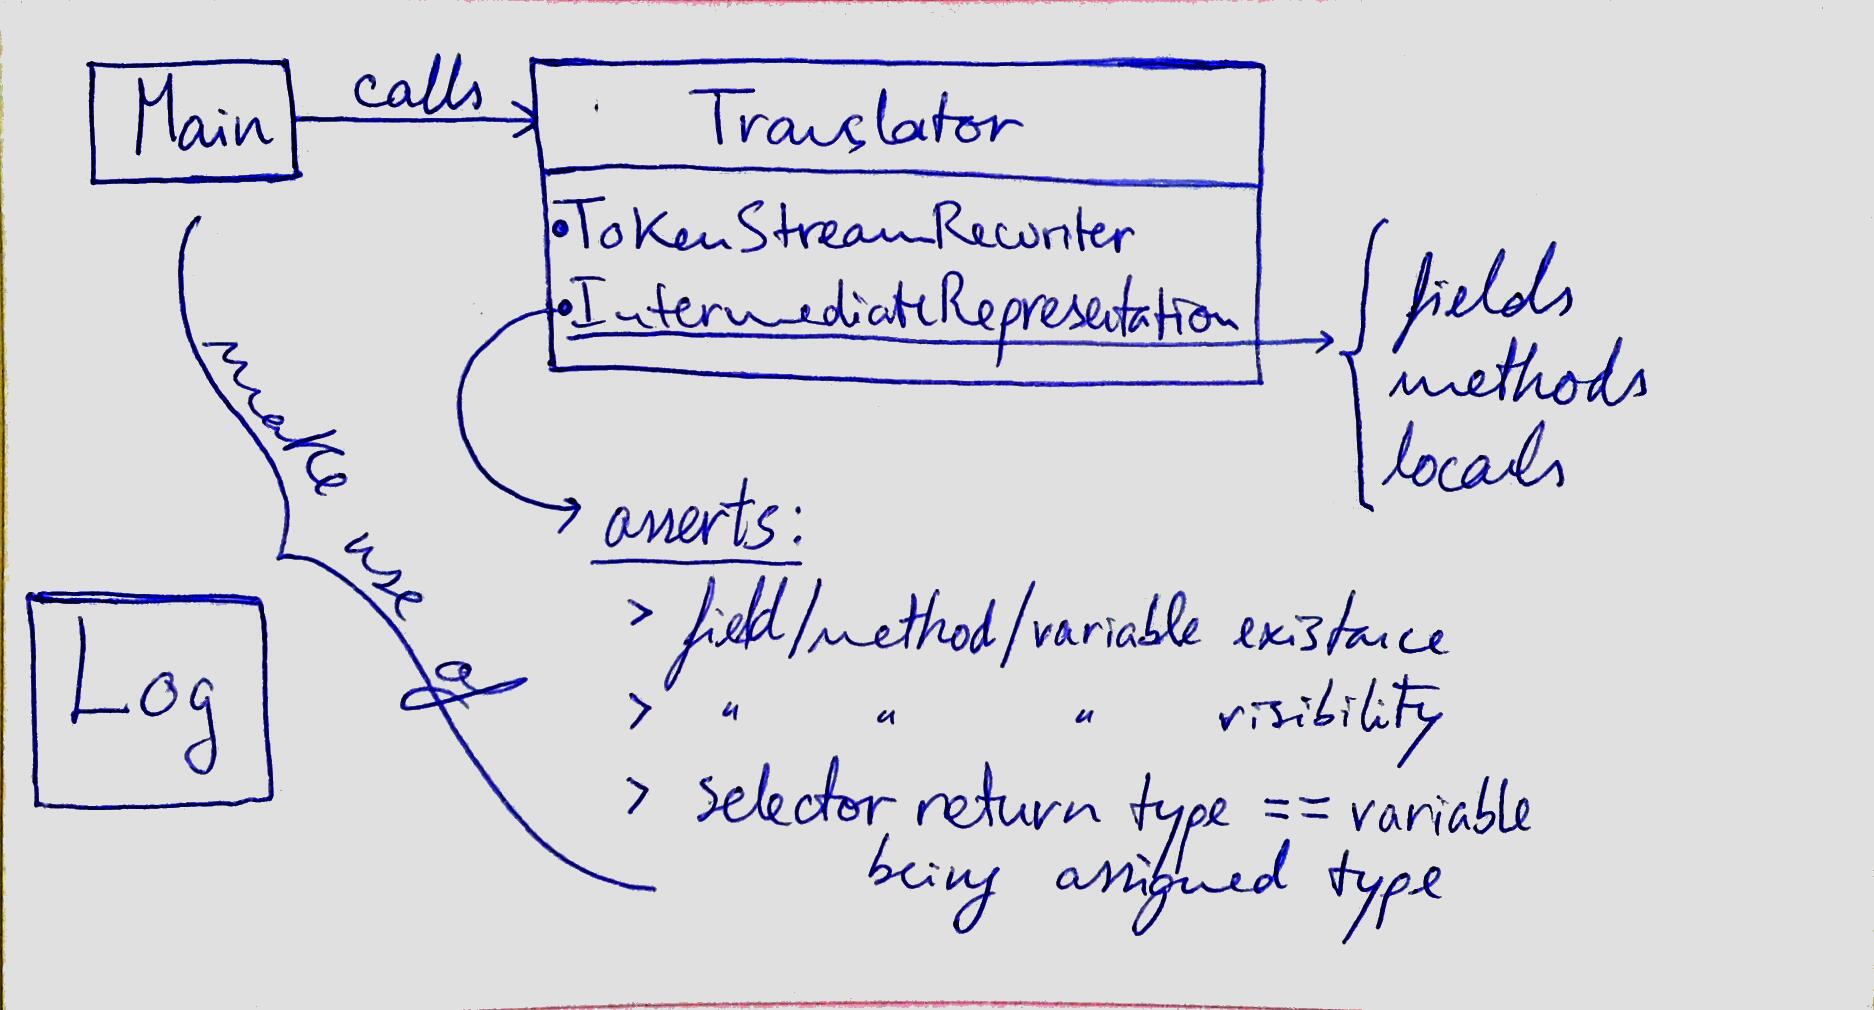 Main
calls
Translator
•TokenStreamRewriter
•IntermediateRepresentation
fields
methods
locals
make use
Log
asserts:
> field/method/variable existance
> " " " visibility
> selector return type == variable
being assigned type